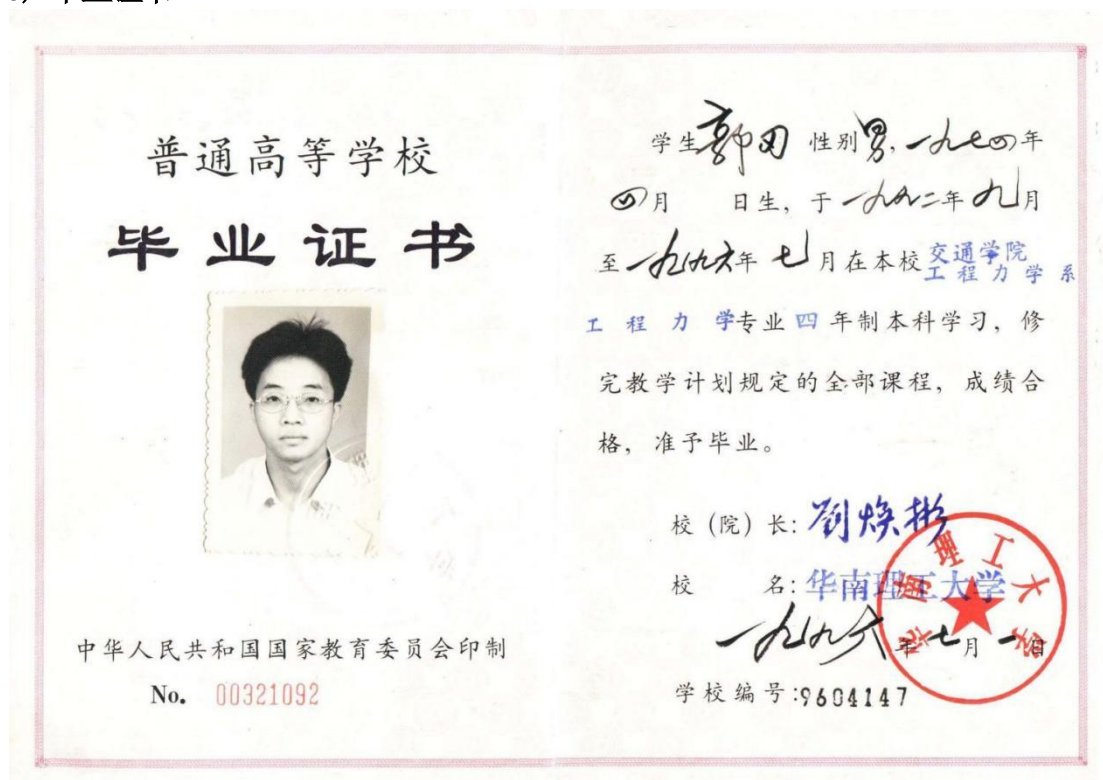 普通高等学校
毕业证书
中华人民共和国国家教育委员会印制
No. 00321092
学生 郭 性别男，一九七四年
四月 日生，于一九九二年九月
至一九九六年七月在本校交通学院
工程力学系
工程力学专业四年制本科学习，修
完教学计划规定的全部课程，成绩合
格，准予毕业。
校（院）长：刘焕彬
校 名：华南理工大学
华南理工大学
一九九六年七月一日
学校编号：9604147